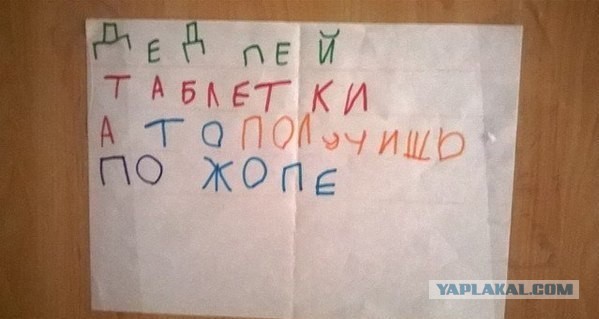 ДЕД ПЕЙ
ТАБЛЕТКИ
А ТО ПОЛУЧИШЬ
ПО ЖОПЕ
YAPLAKAL.COM